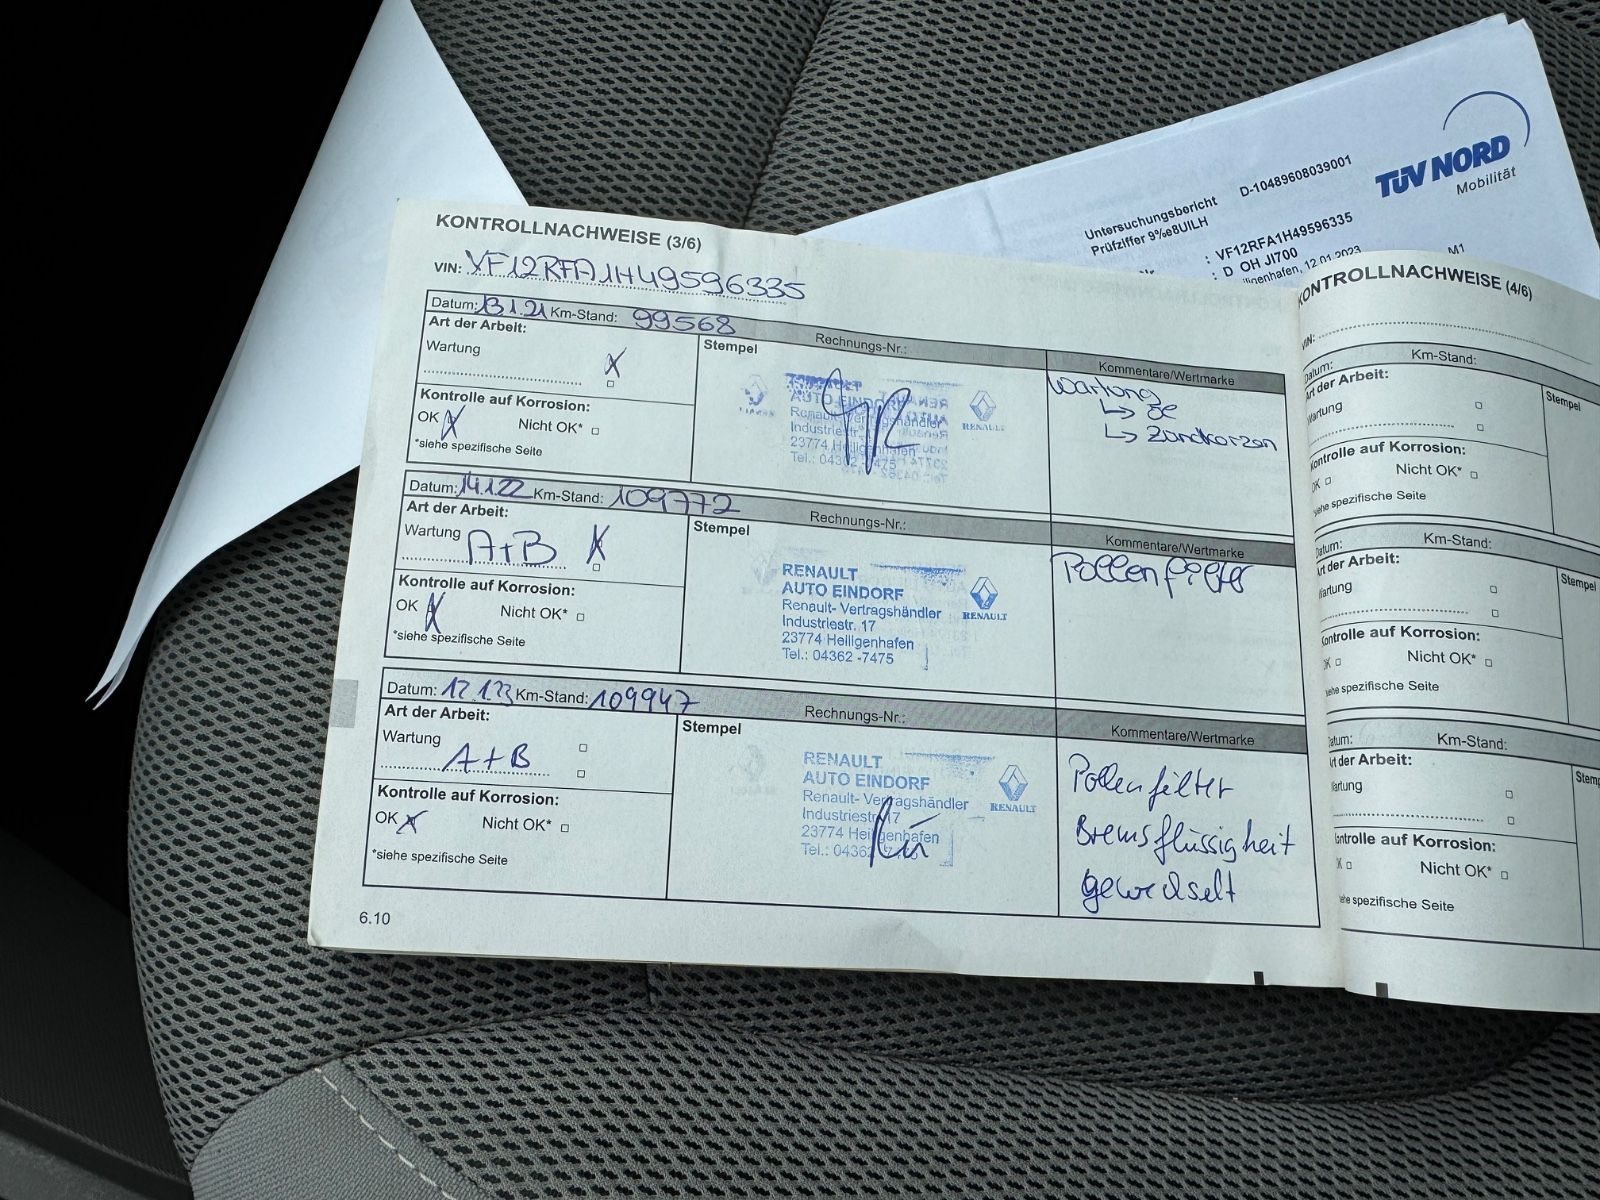 TÜV NORD
Mobilität
Untersuchungsbericht D-10489608039001
Prüfziffer 9‰e8UILH
: VF12RFA1H49596335
: D OH JI700
12.01.2023
M1
KONTROLLNACHWEISE (3/6)
VIN: VF12RFA1H49596335
Datum: 13.1.21 Km-Stand: 99568 Rechnungs-Nr.:
Art der Arbeit:
Wartung X
Kontrolle auf Korrosion:
OK X Nicht OK*
*siehe spezifische Seite
Stempel
AUTO EINDORF
Renault- Vertragshändler
Industriestr.
23774 Heiligenhafen
Tel.: 04362 -7475
RENAULT
Kommentare/Wertmarke
Wartung
↳ Öl
↳ Zündkerzen
Datum: 14.1.22 Km-Stand: 109772 Rechnungs-Nr.:
Art der Arbeit:
Wartung A+B X
Kontrolle auf Korrosion:
OK X Nicht OK*
*siehe spezifische Seite
Stempel
RENAULT
AUTO EINDORF
Renault- Vertragshändler
Industriestr. 17
23774 Heiligenhafen
Tel.: 04362 -7475
RENAULT
Kommentare/Wertmarke
Pollenfilter
Datum: 12.1.23 Km-Stand: 109947 Rechnungs-Nr.:
Art der Arbeit:
Wartung
A+B
Kontrolle auf Korrosion:
OK X Nicht OK*
*siehe spezifische Seite
Stempel
RENAULT
AUTO EINDORF
Renault- Vertragshändler
Industriestr. 17
23774 Heiligenhafen
Tel.: 04362
RENAULT
Kommentare/Wertmarke
Pollenfilter
Bremsflüssigkeit
gewechselt
6.10
KONTROLLNACHWEISE (4/6)
VIN:
Datum: Km-Stand:
Art der Arbeit:
Wartung
Stempel
Kontrolle auf Korrosion:
OK Nicht OK*
siehe spezifische Seite
Datum: Km-Stand:
Art der Arbeit:
Wartung
Stempel
Kontrolle auf Korrosion:
OK Nicht OK*
siehe spezifische Seite
Datum: Km-Stand:
Art der Arbeit:
Wartung
Stemp
Kontrolle auf Korrosion:
OK Nicht OK*
siehe spezifische Seite